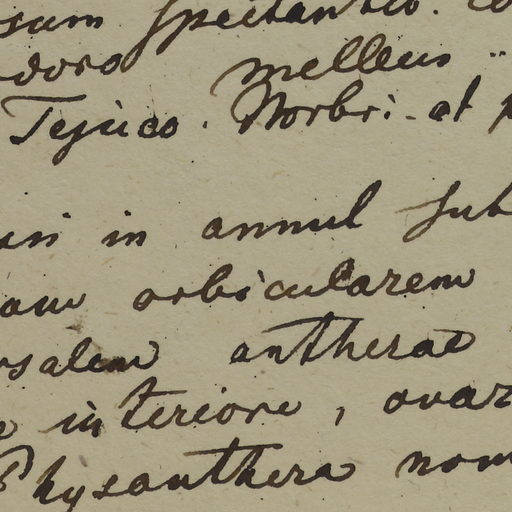 sum spectantes. co
doro melleus
Tejuco. Morbi. at p
in annul sub
am orbicularem
rsalem antherae
interiore, ovar
Physanthera nom